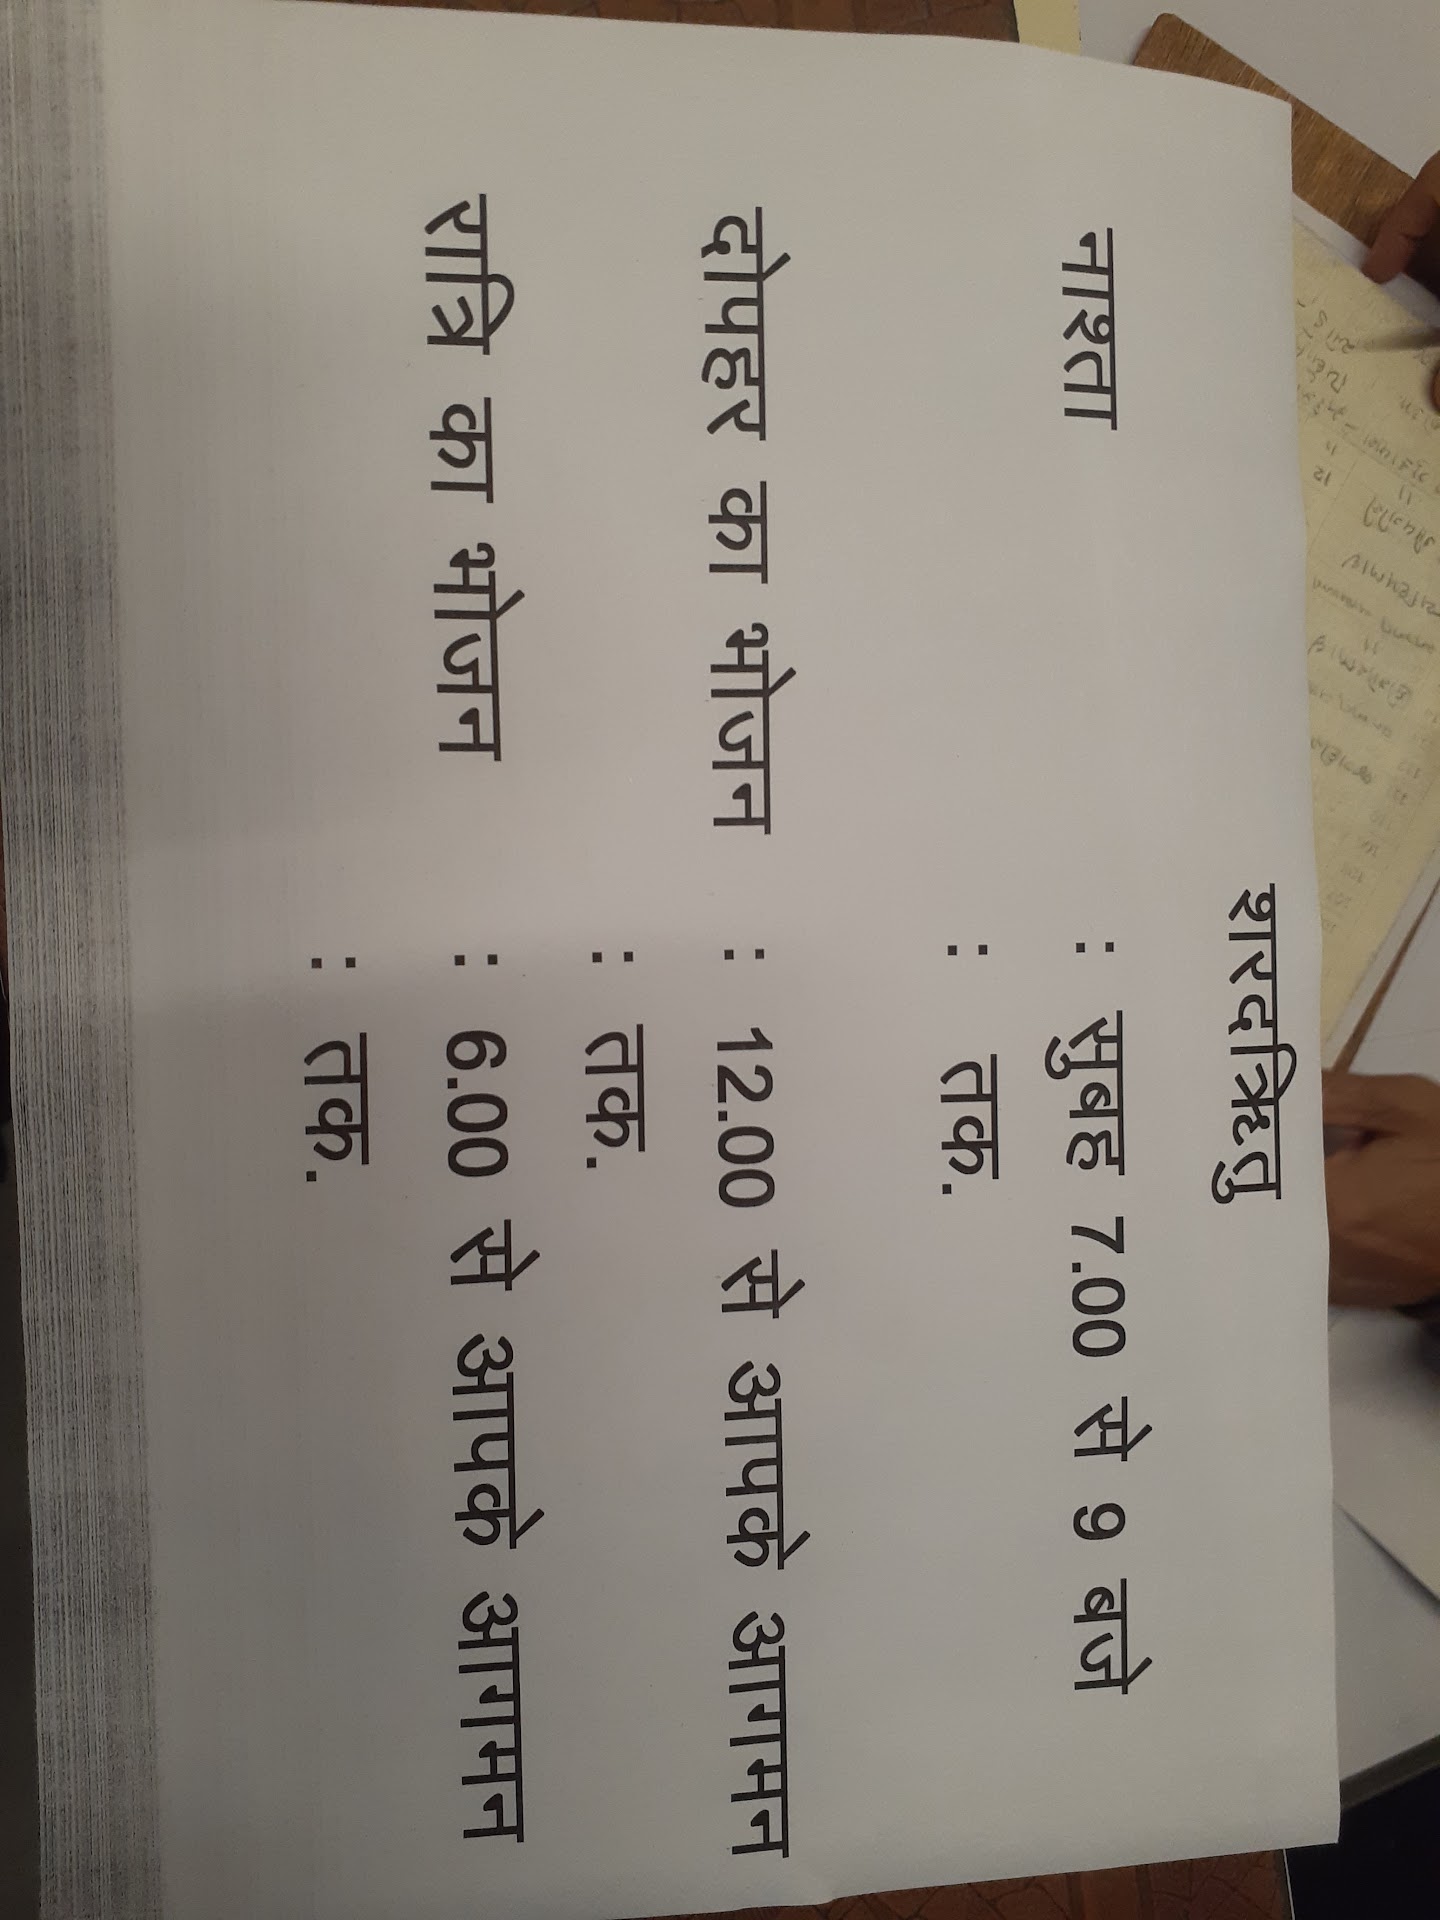 शारदऋितु
नाश्ता : सुबह 7.00 से 9 बजे
: तक.
दोपहर का भोजन : 12.00 से आपके आगमन
: तक.
रात्रि का भोजन : 6.00 से आपके आगमन
: तक.